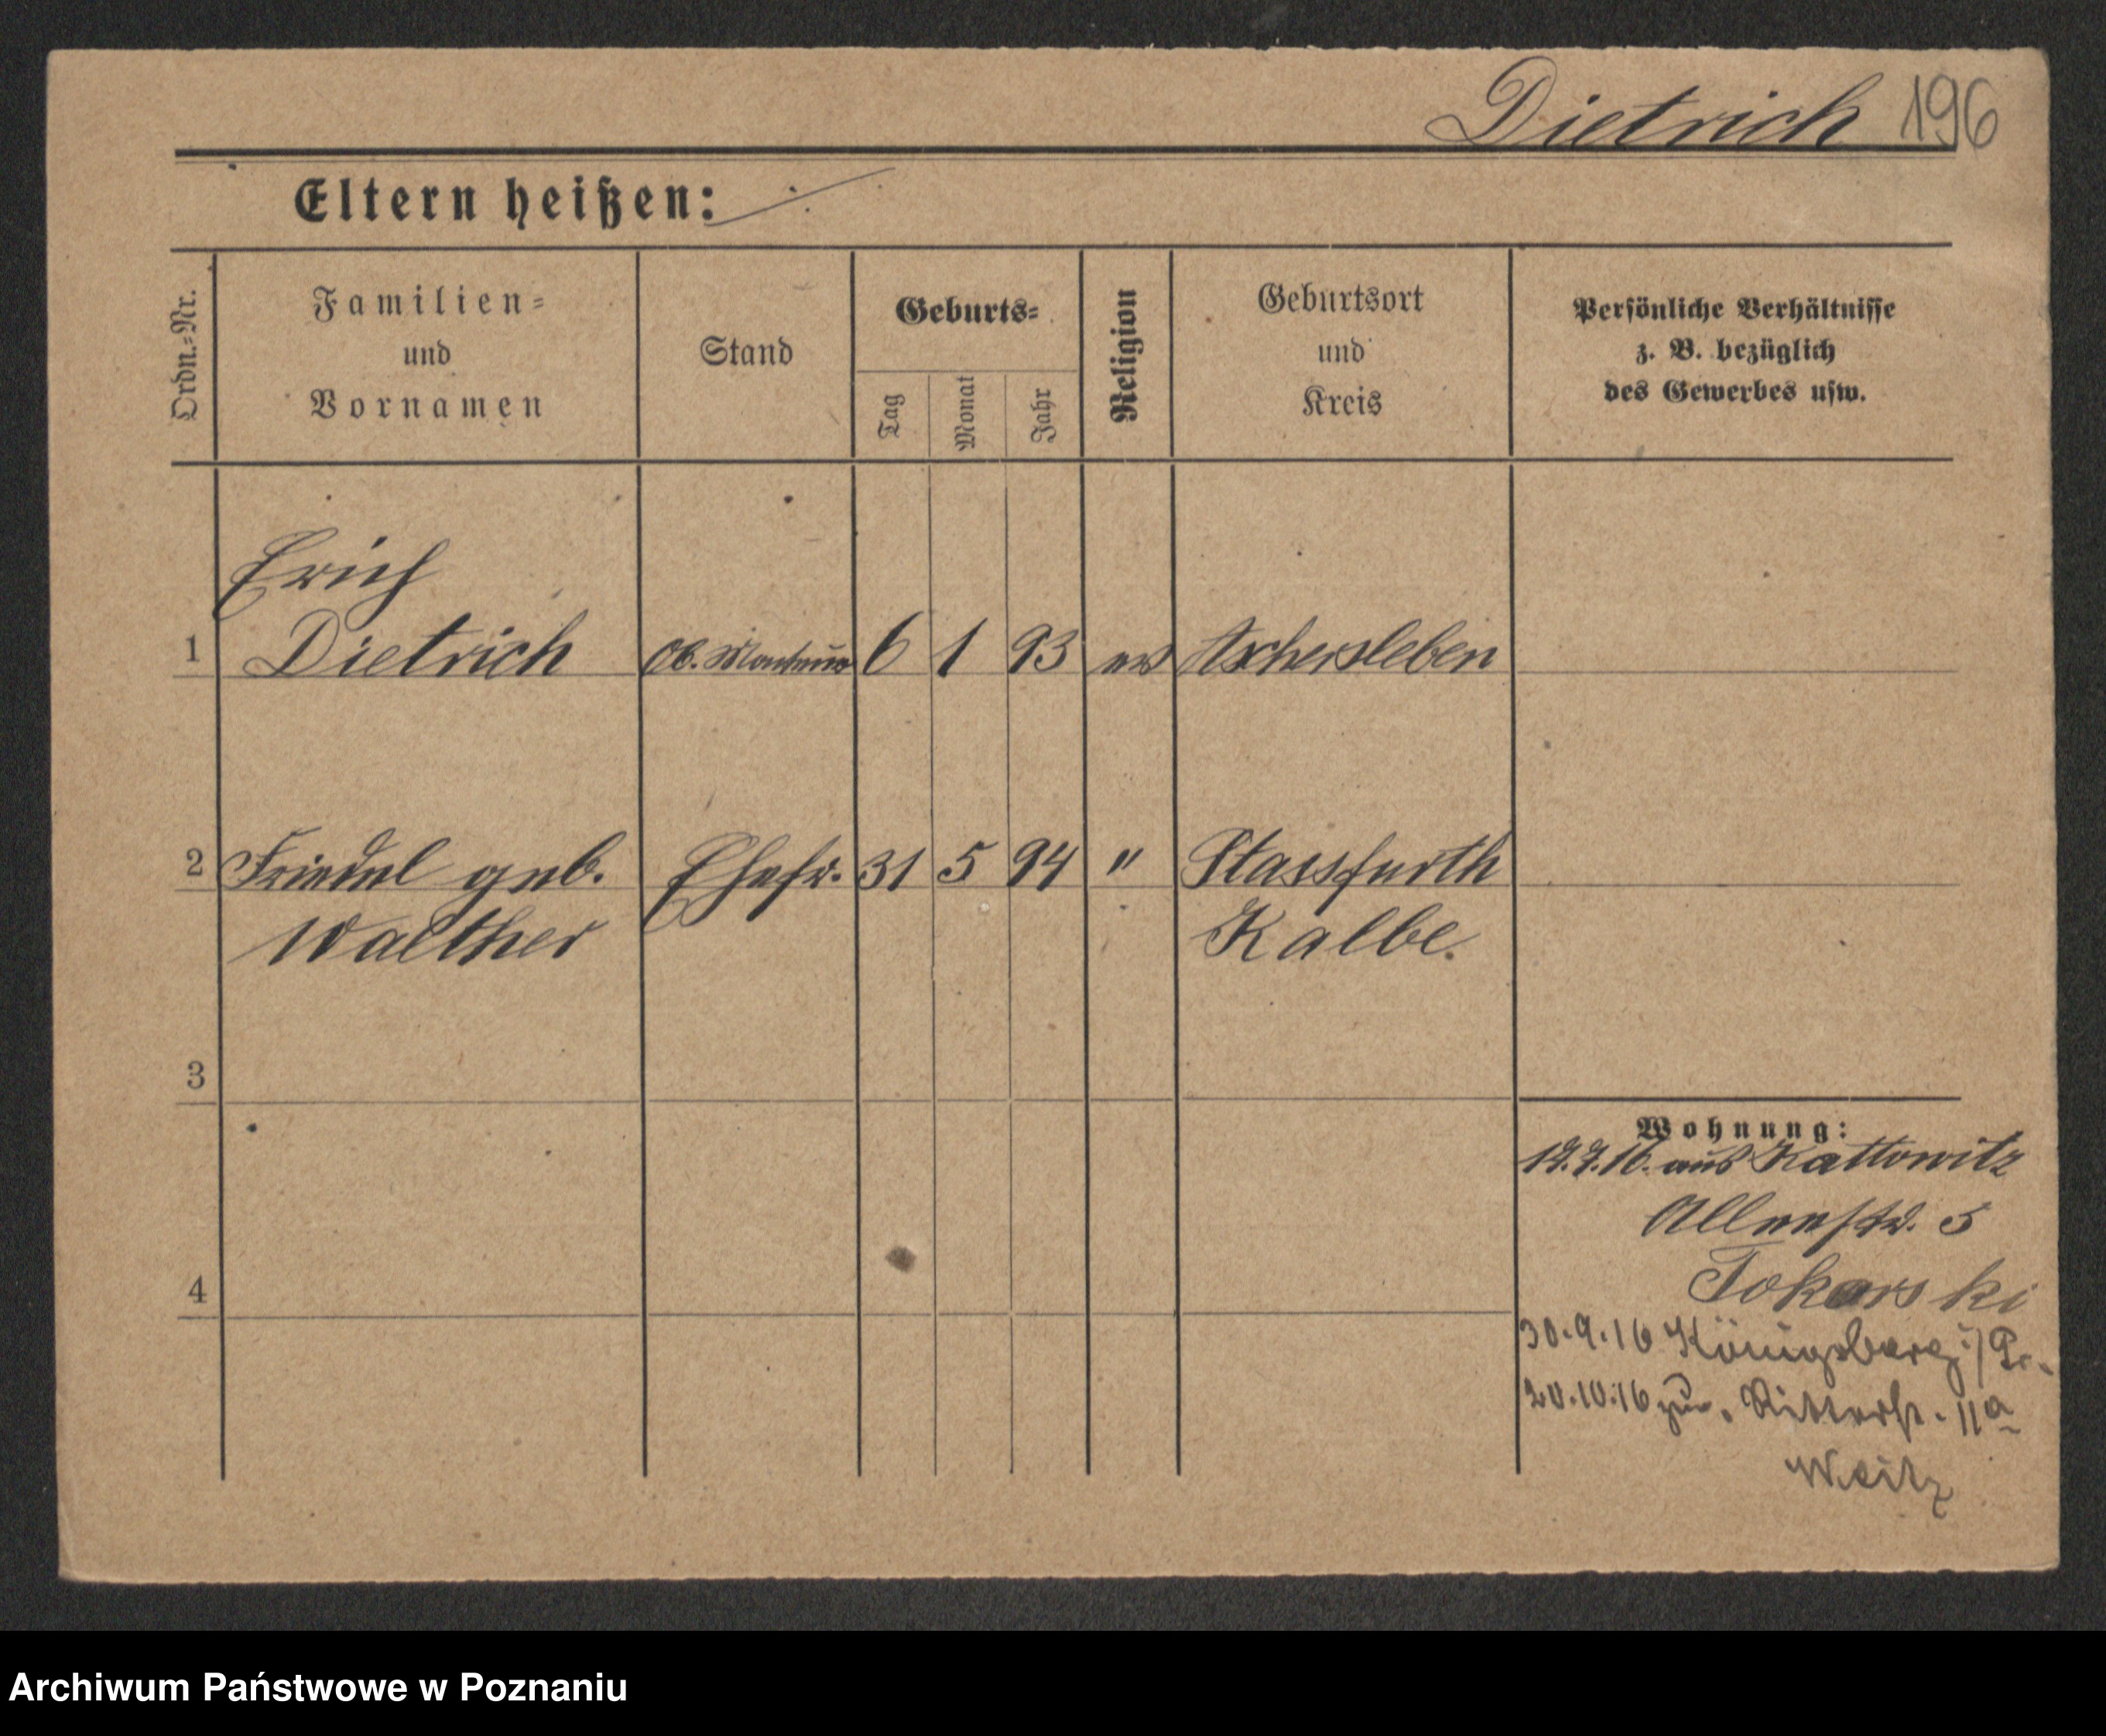 Dietrich 196
Eltern heißen: ./.
Ordn.-Nr.
Familien-
und
Vornamen
Stand
Geburts-
Tag
Monat
Jahr
Religion
Geburtsort
und
Kreis
Persönliche Verhältnisse
z. B. bezüglich
des Gewerbes usw.
Erich
1 Dietrich Ob. Monteur 6 1 93 ev Aschersleben
2 Friedel geb. Ehefr. 31 5 94 " Stassfurth
Walther Kalbe.
3
Wohnung:
12.7.16. aus Kattowitz
Alleestr. 5
Tokarski
4
30.9.16 Königsberg i/Pr.
20.10.16 zur. Ritterstr. 11a
Weitz
Archiwum Państwowe w Poznaniu